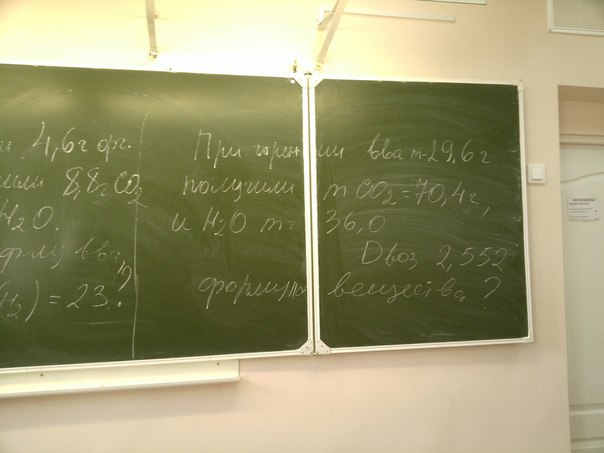 4,6г орг.
8,8г CO2
H2O.
ф-лу вва
H2) = 23.?
При горении вва m-29,6г
получили m CO2=70,4г,
и H2O m= 36,0
Dвоз 2,552
формула вещества?